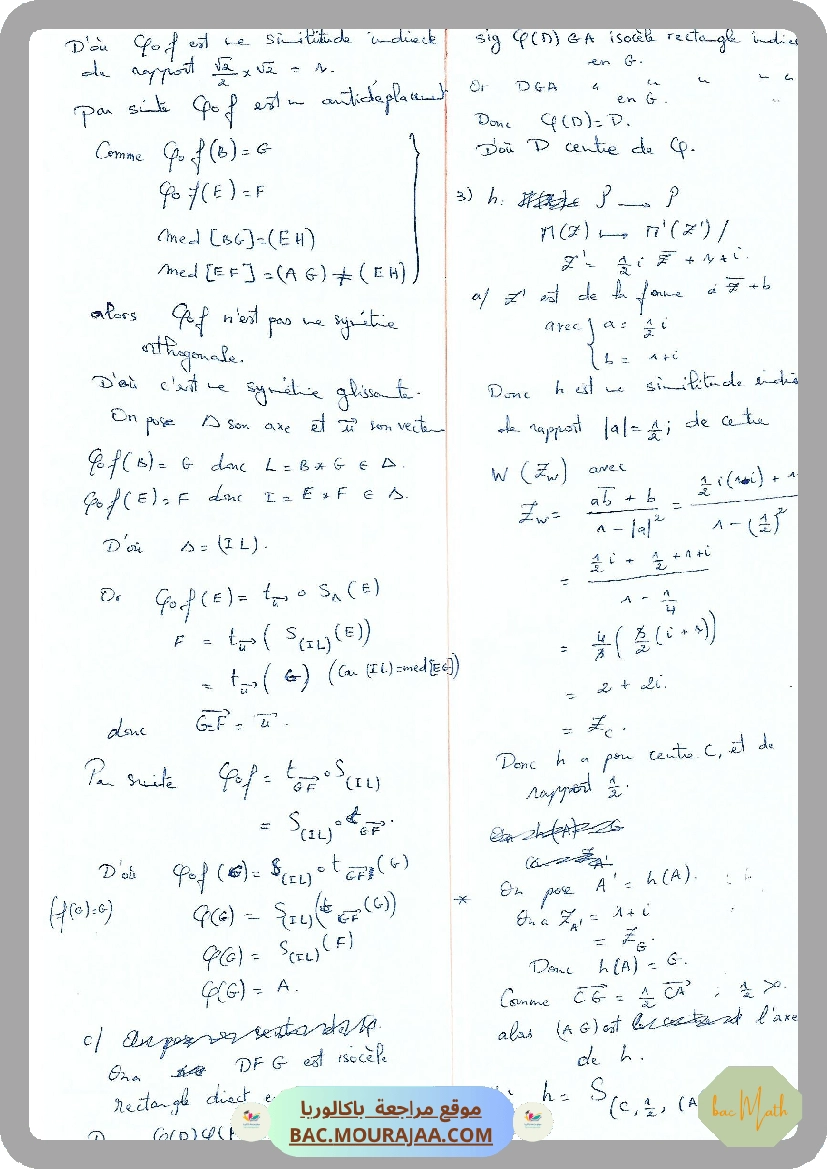 D'où φof est une similitude indirecte
de rapport √2/2 × √2 = 1.
par suite φof est un antidéplacement
Comme φof(B) = G
φof(E) = F
med [BG] = (EH)
med [EF] = (AG) ≠ (EH)
alors φof n'est pas une symétrie
orthogonale.
D'où c'est une symétrie glissante.
On pose Δ son axe et u⃗ son vecteur
φof(B) = G donc L = B * G ∈ Δ.
φof(E) = F donc I = E * F ∈ Δ.
D'où Δ = (IL).
Or φof(E) = t_u⃗ o S_Δ(E)
F = t_u⃗ ( S_(IL)(E))
= t_u⃗ ( G) (Car (IL) = med[EG])
donc GF⃗ = u⃗.
Par suite φof = t_GF⃗ o S_(IL)
= S_(IL) o t_GF⃗.
D'où φof (G) = S_(IL) o t_GF⃗ (G)
(f(G)=G) φ(G) = S_(IL)(t_GF⃗(G))
φ(G) = S_(IL)(F)
φ(G) = A.
c/
On a DFG est isocèle
rectangle direct
sig φ(D) GA isocèle rectangle indirec
en G.
Or DGA " " " " "
en G.
Donc φ(D) = D.
D'où D centre de φ.
3) h: P → P
M(Z) ↦ M'(Z') /
Z' = 1/2 i Z̄ + 1 + i.
a/ Z' est de la forme a Z̄ + b
avec { a = 1/2 i
b = 1+i
Donc h est une similitude indire
de rapport |a| = 1/2 ; de centre
W (Z_w) avec
Z_w = (ab̄ + b)/(1 - |a|²) = (1/2 i(1-i) + 1)/(1 - (1/2)²)
= (1/2 i + 1/2 + 1 + i)/(1 - 1/4)
= 4/3 ( 3/2 (i + 1))
= 2 + 2i.
= Z_C.
Donc h a pour centre C, et de
rapport 1/2.
* On pose A' = h(A).
On a Z_A' = 1+i
= Z_G.
Donc h(A) = G.
Comme CG⃗ = 1/2 CA⃗ ; 1/2 > 0
alors (AG) est l'axe
de h.
h = S_(C, 1/2, (A
موقع مراجعة باكالوريا
BAC.MOURAJAA.COM
bac Math